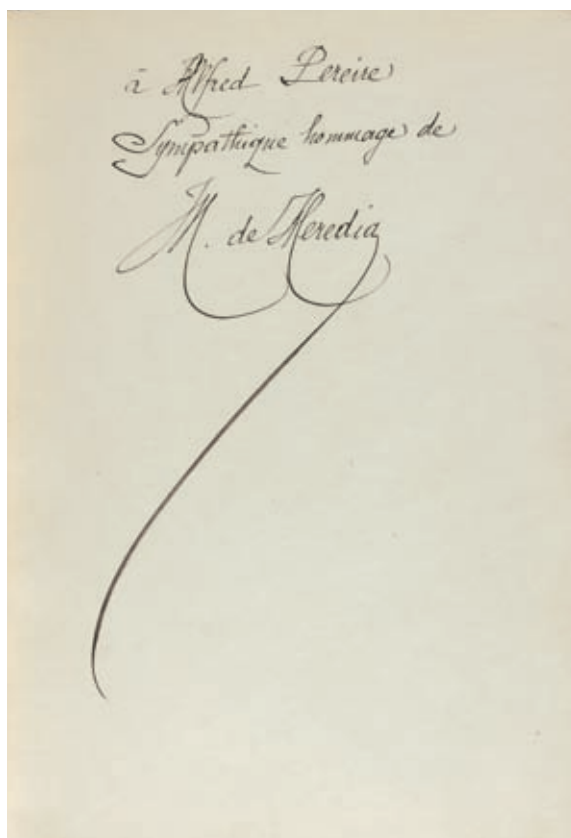 à Alfred Pereire
Sympathique hommage de
M. de Heredia